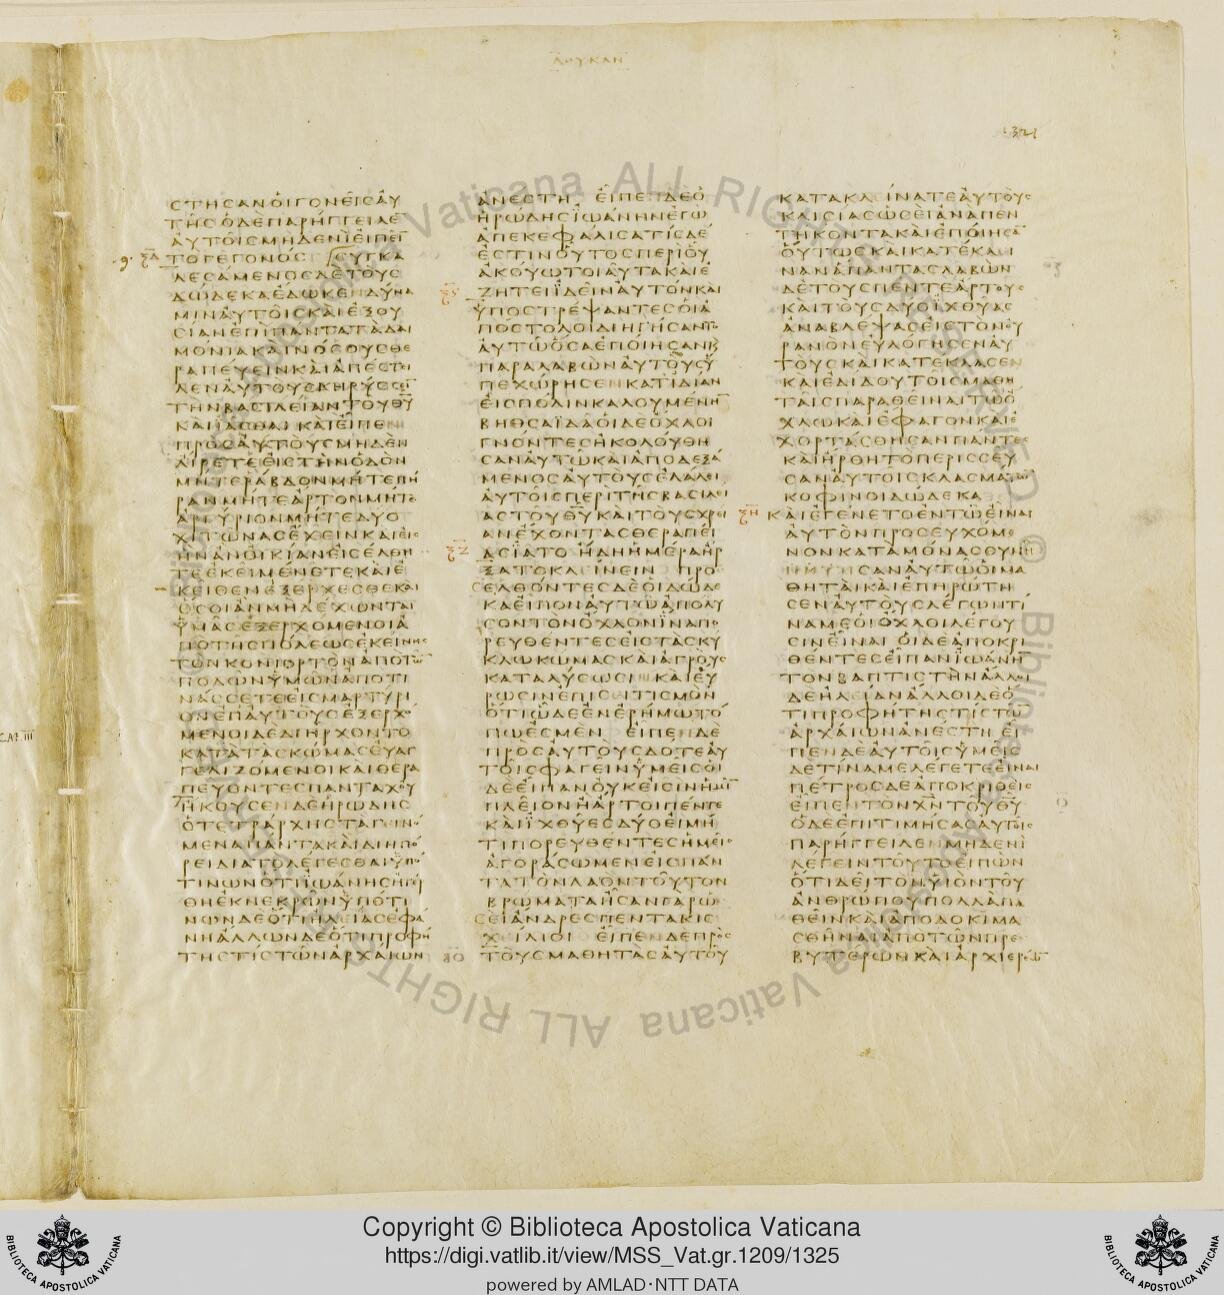 ΛΟΥΚΑΝ
1321
ϹΤΗϹΑΝΟΙΓΟΝΕΙϹΑΥ
ΤΗϹΟΔΕΠΑΡΗΓΓΕΙΛΕ
ΑΥΤΟΙϹΜΗΔΕΝΙΕΙΠΕΙ
ΤΟΓΕΓΟΝΟϹ ϹΥΓΚΑ
ΛΕϹΑΜΕΝΟϹΔΕΤΟΥϹ
ΔΩΔΕΚΑΕΔΩΚΕΝΔΥΝΑ
ΜΙΝΑΥΤΟΙϹΚΑΙΕΞΟΥ
ϹΙΑΝΕΠΙΠΑΝΤΑΤΑΔΑΙ
ΜΟΝΙΑΚΑΙΝΟϹΟΥϹΘΕ
ΡΑΠΕΥΕΙΝΚΑΙΑΠΕϹΤΙ
ΛΕΝΑΥΤΟΥϹΚΗΡΥϹϹΙ
ΤΗΝΒΑϹΙΛΕΙΑΝΤΟΥΘΥ
ΚΑΙΙΑϹΘΑΙ ΚΑΙΕΙΠΕΝ
ΠΡΟϹΑΥΤΟΥϹΜΗΔΕΝ
ΑΙΡΕΤΕΕΙϹΤΗΝΟΔΟΝ
ΜΗΤΕΡΑΒΔΟΝΜΗΤΕΠΗ
ΡΑΝΜΗΤΕΑΡΤΟΝΜΗΤΕ
ΑΡΓΥΡΙΟΝΜΗΤΕΔΥΟ
ΧΙΤΩΝΑϹΕΧΕΙΝΚΑΙΕΙϹ
ΗΝΑΝΟΙΚΙΑΝΕΙϹΕΛΘΗ
ΤΕΕΚΕΙΜΕΝΕΤΕΚΑΙΕ
ΚΕΙΘΕΝΕΞΕΡΧΕϹΘΕΚΑΙ
ΟϹΟΙΑΝΜΗΔΕΧΩΝΤΑΙ
ΥΜΑϹΕΞΕΡΧΟΜΕΝΟΙΑ
ΠΟΤΗϹΠΟΛΕΩϹΕΚΕΙΝΗϹ
ΤΟΝΚΟΝΙΟΡΤΟΝΑΠΟΤΩ
ΠΟΔΩΝΥΜΩΝΑΠΟΤΙ
ΝΑϹϹΕΤΕΕΙϹΜΑΡΤΥΡΙ
ΟΝΕΠΑΥΤΟΥϹΕΞΕΡΧΟ
ΜΕΝΟΙΔΕΔΙΗΡΧΟΝΤΟ
ΚΑΤΑΤΑϹΚΩΜΑϹΕΥΑΓ
ΓΕΛΙΖΟΜΕΝΟΙΚΑΙΘΕΡΑ
ΠΕΥΟΝΤΕϹΠΑΝΤΑΧΟΥ
ΗΚΟΥϹΕΝΔΕΗΡΩΔΗϹ
ΟΤΕΤΡΑΡΧΗϹΤΑΓΕΙΝΟ
ΜΕΝΑΠΑΝΤΑΚΑΙΔΙΗΠΟ
ΡΕΙΔΙΑΤΟΛΕΓΕϹΘΑΙΥΠΟ
ΤΙΝΩΝΟΤΙΙΩΑΝΗϹΗΓΕΡ
ΘΗΕΚΝΕΚΡΩΝΥΠΟΤΙ
ΝΩΝΔΕΟΤΙΗΛΕΙΑϹΕΦΑ
ΝΗΑΛΛΩΝΔΕΟΤΙΠΡΟΦΗ
ΤΗϹΤΙϹΤΩΝΑΡΧΑΙΩΝ
ΑΝΕϹΤΗ ΕΙΠΕΝΔΕΟ
ΗΡΩΔΗϹΙΩΑΝΗΝΕΓΩ
ΑΠΕΚΕΦΑΛΙϹΑΤΙϹΔΕ
ΕϹΤΙΝΟΥΤΟϹΠΕΡΙΟΥ
ΑΚΟΥΩΤΟΙΑΥΤΑΚΑΙΕ
ΖΗΤΕΙΙΔΕΙΝΑΥΤΟΝΚΑΙ
ΥΠΟϹΤΡΕΨΑΝΤΕϹΟΙΑ
ΠΟϹΤΟΛΟΙΔΙΗΓΗϹΑΝΤΟ
ΑΥΤΩΟϹΑΕΠΟΙΗϹΑΝΚ
ΠΑΡΑΛΑΒΩΝΑΥΤΟΥϹΥ
ΠΕΧΩΡΗϹΕΝΚΑΤΙΔΙΑΝ
ΕΙϹΠΟΛΙΝΚΑΛΟΥΜΕΝΗ
ΒΗΘϹΑΙΔΑΟΙΔΕΟΧΛΟΙ
ΓΝΟΝΤΕϹΗΚΟΛΟΥΘΗ
ϹΑΝΑΥΤΩΚΑΙΑΠΟΔΕΞΑ
ΜΕΝΟϹΑΥΤΟΥϹΕΛΑΛΕΙ
ΑΥΤΟΙϹΠΕΡΙΤΗϹΒΑϹΙΛΕΙ
ΑϹΤΟΥΘΥΚΑΙΤΟΥϹΧΡΕΙ
ΑΝΕΧΟΝΤΑϹΘΕΡΑΠΕΙ
ΑϹΙΑΤΟ ΗΔΗΗΜΕΡΑΗΡ
ΞΑΤΟΚΛΙΝΕΙΝ ΠΡΟϹ
ΕΛΘΟΝΤΕϹΔΕΟΙΔΩΔΕ
ΚΑΕΙΠΟΝΑΥΤΩΑΠΟΛΥ
ϹΟΝΤΟΝΟΧΛΟΝΙΝΑΠΟ
ΡΕΥΘΕΝΤΕϹΕΙϹΤΑϹΚΥ
ΚΛΩΚΩΜΑϹΚΑΙΑΓΡΟΥϹ
ΚΑΤΑΛΥϹΩϹΙ ΚΑΙΕΥ
ΡΩϹΙΝΕΠΙϹΙΤΙϹΜΟΝ
ΟΤΙΩΔΕΕΝΕΡΗΜΩΤΟ
ΠΩΕϹΜΕΝ ΕΙΠΕΝΔΕ
ΠΡΟϹΑΥΤΟΥϹΔΟΤΕΑΥ
ΤΟΙϹΦΑΓΕΙΝΥΜΕΙϹΟΙ
ΔΕΕΙΠΑΝΟΥΚΕΙϹΙΝΗΜΙ
ΠΛΕΙΟΝΗΑΡΤΟΙΠΕΝΤΕ
ΚΑΙΙΧΘΥΕϹΔΥΟΕΙΜΗ
ΤΙΠΟΡΕΥΘΕΝΤΕϹΗΜΕΙϹ
ΑΓΟΡΑϹΩΜΕΝΕΙϹΠΑΝ
ΤΑΤΟΝΛΑΟΝΤΟΥΤΟΝ
ΒΡΩΜΑΤΑΗϹΑΝΓΑΡΩϹ
ΕΙΑΝΔΡΕϹΠΕΝΤΑΚΙϹ
ΧΙΛΙΟΙ ΕΙΠΕΝΔΕΠΡΟϹ
ΤΟΥϹΜΑΘΗΤΑϹΑΥΤΟΥ
ΚΑΤΑΚΛΙΝΑΤΕΑΥΤΟΥϹ
ΚΛΙϹΙΑϹΩϹΕΙΑΝΑΠΕΝ
ΤΗΚΟΝΤΑΚΑΙΕΠΟΙΗϹΑ
ΟΥΤΩϹΚΑΙΚΑΤΕΚΛΙ
ΝΑΝΑΠΑΝΤΑϹΛΑΒΩΝ
ΔΕΤΟΥϹΠΕΝΤΕΑΡΤΟΥϹ
ΚΑΙΤΟΥϹΔΥΟΙΧΘΥΑϹ
ΑΝΑΒΛΕΨΑϹΕΙϹΤΟΝΟΥ
ΡΑΝΟΝΕΥΛΟΓΗϹΕΝΑΥ
ΤΟΥϹΚΑΙΚΑΤΕΚΛΑϹΕΝ
ΚΑΙΕΔΙΔΟΥΤΟΙϹΜΑΘΗ
ΤΑΙϹΠΑΡΑΘΕΙΝΑΙΤΩΟ
ΧΛΩΚΑΙΕΦΑΓΟΝΚΑΙΕ
ΧΟΡΤΑϹΘΗϹΑΝΠΑΝΤΕϹ
ΚΑΙΗΡΘΗΤΟΠΕΡΙϹϹΕΥ
ϹΑΝΑΥΤΟΙϹΚΛΑϹΜΑΤΩ
ΚΟΦΙΝΟΙΔΩΔΕΚΑ
ΚΑΙΕΓΕΝΕΤΟΕΝΤΩΕΙΝΑΙ
ΑΥΤΟΝΠΡΟϹΕΥΧΟΜΕ
ΝΟΝΚΑΤΑΜΟΝΑϹϹΥΝΗ
ΝΤΗϹΑΝΑΥΤΩΟΙΜΑ
ΘΗΤΑΙΚΑΙΕΠΗΡΩΤΗ
ϹΕΝΑΥΤΟΥϹΛΕΓΩΝΤΙ
ΝΑΜΕΟΙΟΧΛΟΙΛΕΓΟΥ
ϹΙΝΕΙΝΑΙ ΟΙΔΕΑΠΟΚΡΙ
ΘΕΝΤΕϹΕΙΠΑΝΙΩΑΝΗ
ΤΟΝΒΑΠΤΙϹΤΗΝΑΛΛΟΙ
ΔΕΗΛΕΙΑΝΑΛΛΟΙΔΕΟ
ΤΙΠΡΟΦΗΤΗϹΤΙϹΤΩ
ΑΡΧΑΙΩΝΑΝΕϹΤΗ ΕΙ
ΠΕΝΔΕΑΥΤΟΙϹΥΜΕΙϹ
ΔΕΤΙΝΑΜΕΛΕΓΕΤΕΕΙΝΑΙ
ΠΕΤΡΟϹΔΕΑΠΟΚΡΙΘΕΙϹ
ΕΙΠΕΝΤΟΝΧΝΤΟΥΘΥ
ΟΔΕΕΠΙΤΙΜΗϹΑϹΑΥΤΟΙϹ
ΠΑΡΗΓΓΕΙΛΕΝΜΗΔΕΝΙ
ΛΕΓΕΙΝΤΟΥΤΟΕΙΠΩΝ
ΟΤΙΔΕΙΤΟΝΥΙΟΝΤΟΥ
ΑΝΘΡΩΠΟΥΠΟΛΛΑΠΑ
ΘΕΙΝΚΑΙΑΠΟΔΟΚΙΜΑ
ϹΘΗΝΑΙΑΠΟΤΩΝΠΡΕϹ
ΒΥΤΕΡΩΝΚΑΙΑΡΧΙΕΡΕΩ
Copyright © Biblioteca Apostolica Vaticana
https://digi.vatlib.it/view/MSS_Vat.gr.1209/1325
powered by AMLAD·NTT DATA